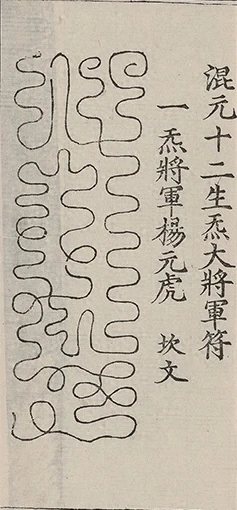 混元十二生炁大將軍符
一炁將軍楊元虎 坎文